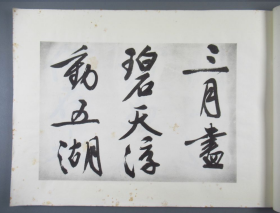 三月盡
碧天浮
動五湖